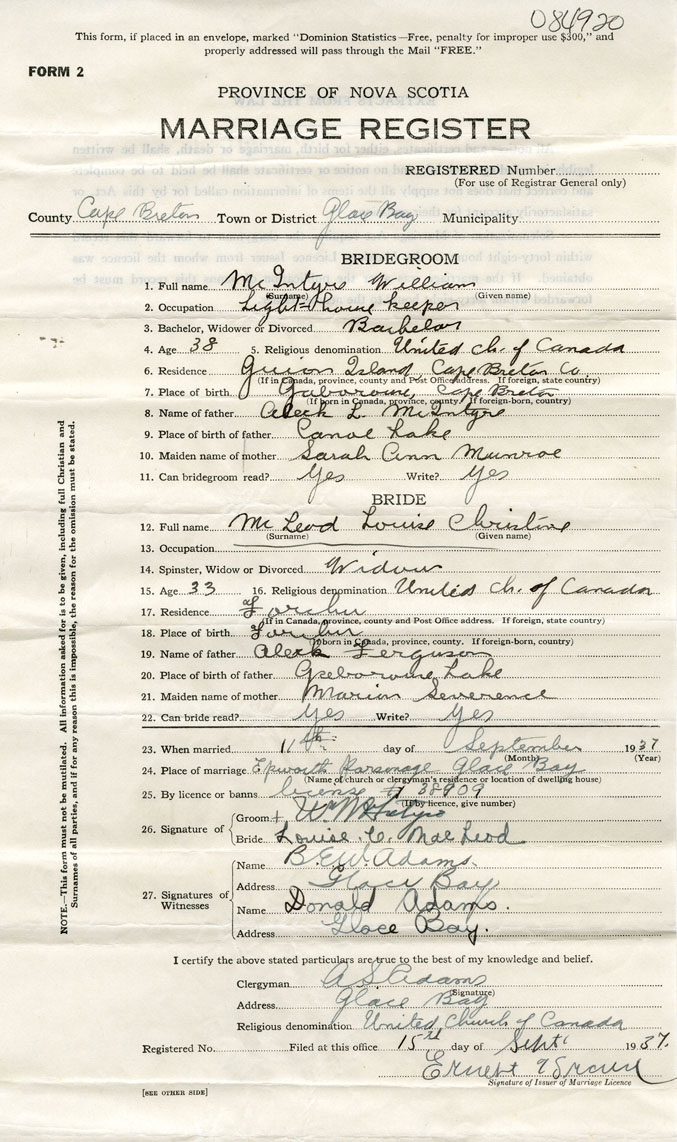 084920
This form, if placed in an envelope, marked "Dominion Statistics—Free, penalty for improper use $300," and
properly addressed will pass through the Mail "FREE."
FORM 2
PROVINCE OF NOVA SCOTIA
MARRIAGE REGISTER
REGISTERED Number
(For use of Registrar General only)
County Cape Breton Town or District Glace Bay Municipality
BRIDEGROOM
1. Full name McIntyre William
(Surname) (Given name)
2. Occupation Light-house keeper
3. Bachelor, Widower or Divorced Bachelor
4. Age 38 5. Religious denomination United Ch. of Canada
6. Residence Guion Island, Cape Breton Co.
(If in Canada, province, county and Post Office address. If foreign, state country)
7. Place of birth Gabarouse, Cape Breton
(If born in Canada, province, county. If foreign-born, country)
8. Name of father Aleck L. McIntyre
9. Place of birth of father Canoe Lake
10. Maiden name of mother Sarah Ann Munroe
11. Can bridegroom read? Yes Write? Yes
BRIDE
12. Full name McLeod Louise Christine
(Surname) (Given name)
13. Occupation
14. Spinster, Widow or Divorced Widow
15. Age 33 16. Religious denomination United Ch. of Canada
17. Residence Forchu
(If in Canada, province, county and Post Office address. If foreign, state country)
18. Place of birth Forchu
(If born in Canada, province, county. If foreign-born, country)
19. Name of father Aleck Ferguson
20. Place of birth of father Lake
21. Maiden name of mother Marion Severence
22. Can bride read? Yes Write? Yes
23. When married 11th day of September 1937
(Month) (Year)
24. Place of marriage Epworth Parsonage Glace Bay
(Name of church or clergyman's residence or location of dwelling house)
25. By licence or banns license # 38909
(If by licence, give number)
26. Signature of Groom Wm McIntyre
Bride Louise C. MacLeod
27. Signatures of Witnesses
Name B.E.W. Adams.
Address Glace Bay
Name Donald Adams.
Address Glace Bay.
I certify the above stated particulars are true to the best of my knowledge and belief.
Clergyman A S Adams
(Signature)
Address Glace Bay
Religious denomination United Church of Canada
Registered No. Filed at this office 15th day of Sept. 1937.
Ernest
Signature of Issuer of Marriage Licence
[SEE OTHER SIDE]
NOTE.—This form must not be mutilated. All information asked for is to be given, including full Christian and
Surnames of all parties, and if for any reason this is impossible, the reason for the omission must be stated.